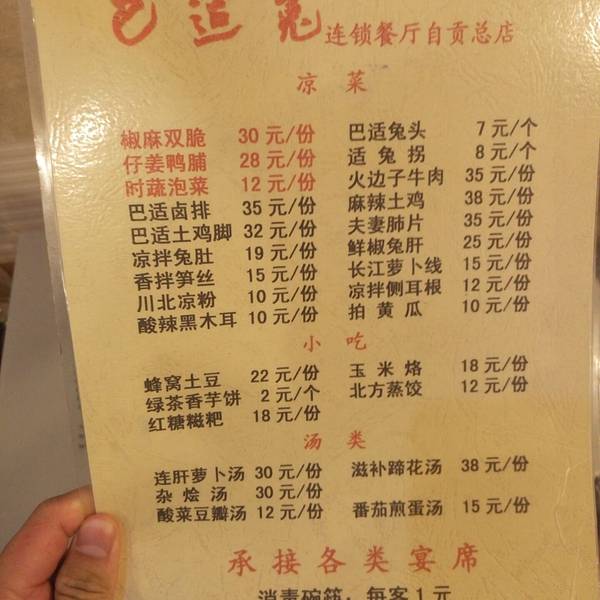 巴适兔连锁餐厅自贡总店
凉菜
椒麻双脆 30元/份
仔姜鸭脯 28元/份
时蔬泡菜 12元/份
巴适卤排 35元/份
巴适土鸡脚 32元/份
凉拌兔肚 19元/份
香拌笋丝 15元/份
川北凉粉 10元/份
酸辣黑木耳 10元/份
巴适兔头 7元/个
适兔拐 8元/个
火边子牛肉 35元/份
麻辣土鸡 38元/份
夫妻肺片 35元/份
鲜椒兔肝 25元/份
长江萝卜线 15元/份
凉拌侧耳根 12元/份
拍黄瓜 10元/份
小吃
蜂窝土豆 22元/份
绿茶香芋饼 2元/个
红糖糍粑 18元/份
玉米烙 18元/份
北方蒸饺 12元/份
汤类
连肝萝卜汤 30元/份
杂烩汤 30元/份
酸菜豆瓣汤 12元/份
滋补蹄花汤 38元/份
番茄煎蛋汤 15元/份
承接各类宴席
消毒碗筷：每客1元